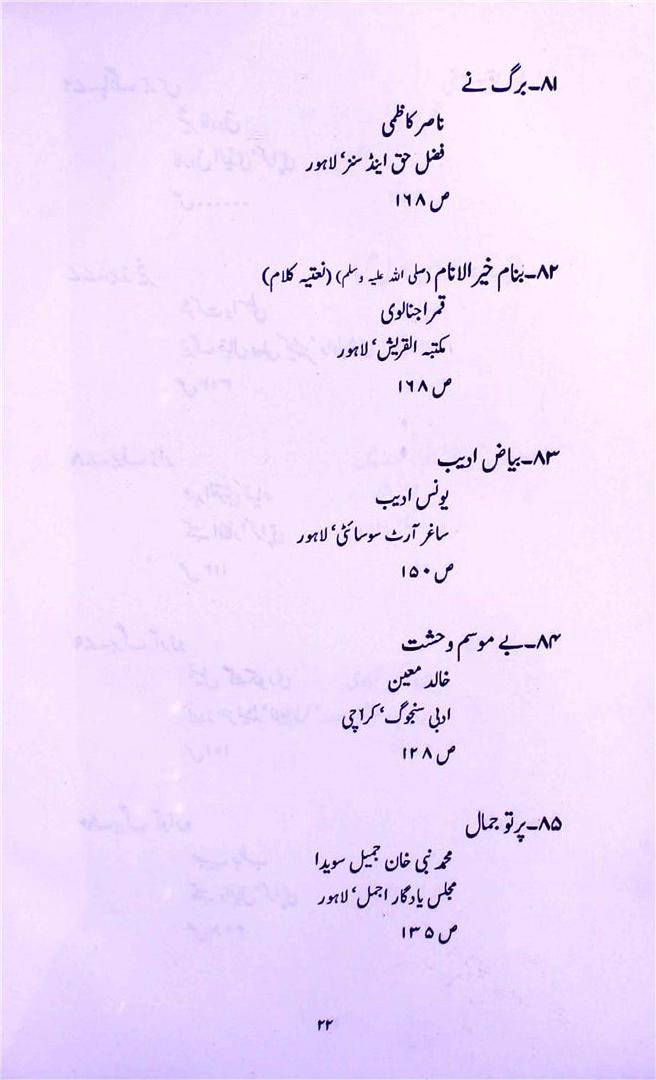 ۸۱۔برگ نے
ناصر کاظمی
فضل حق اینڈ سنز، لاہور
ص ۱۶۸
۸۲۔بنام خیر الانام (صلی اللہ علیہ وسلم) (نعتیہ کلام)
قمر اجنالوی
مکتبہ القریش، لاہور
ص ۱۶۸
۸۳۔بیاض ادیب
یونس ادیب
ساغر آرٹ سوسائٹی، لاہور
ص ۱۵۰
۸۴۔بے موسم وحشت
خالد معین
ادبی سنجوگ، کراچی
ص ۱۲۸
۸۵۔پرتو جمال
محمد نبی خان جمیل سویدا
مجلس یادگار اجمل، لاہور
ص ۱۳۵
۲۲